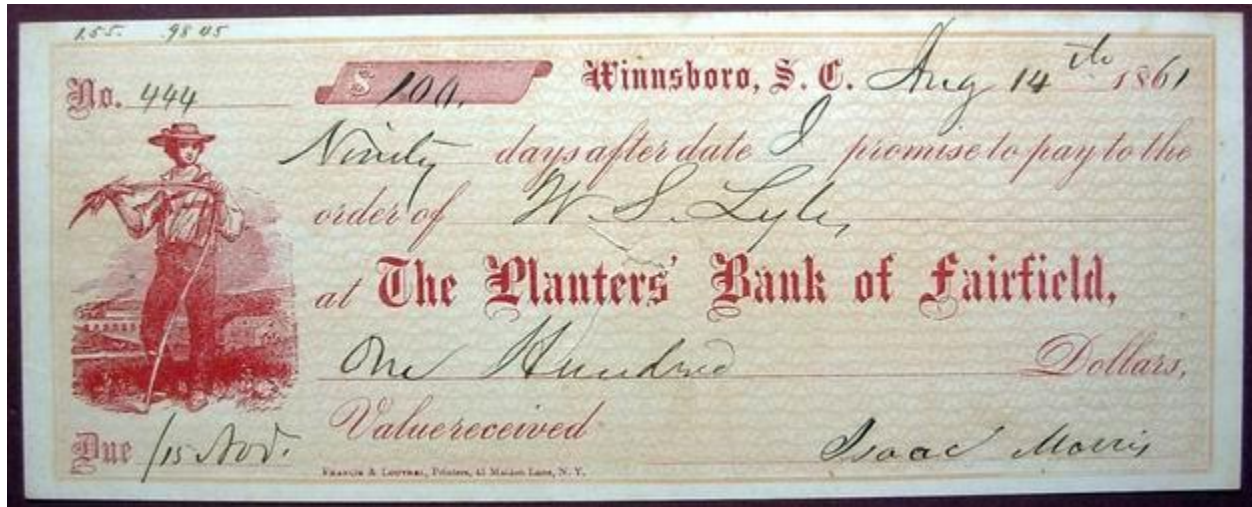 1.55. 98 45
No. 444 $ 100. Winnsboro, S. C. Aug 14th 1861
Ninety days after date I promise to pay to the
order of W. S. Lyles
at The Planters' Bank of Fairfield,
One Hundred Dollars,
Due /15 Nov. Value received Isaac Morris
FRANCIS & LOUTREL, Printers, 45 Maiden Lane, N. Y.